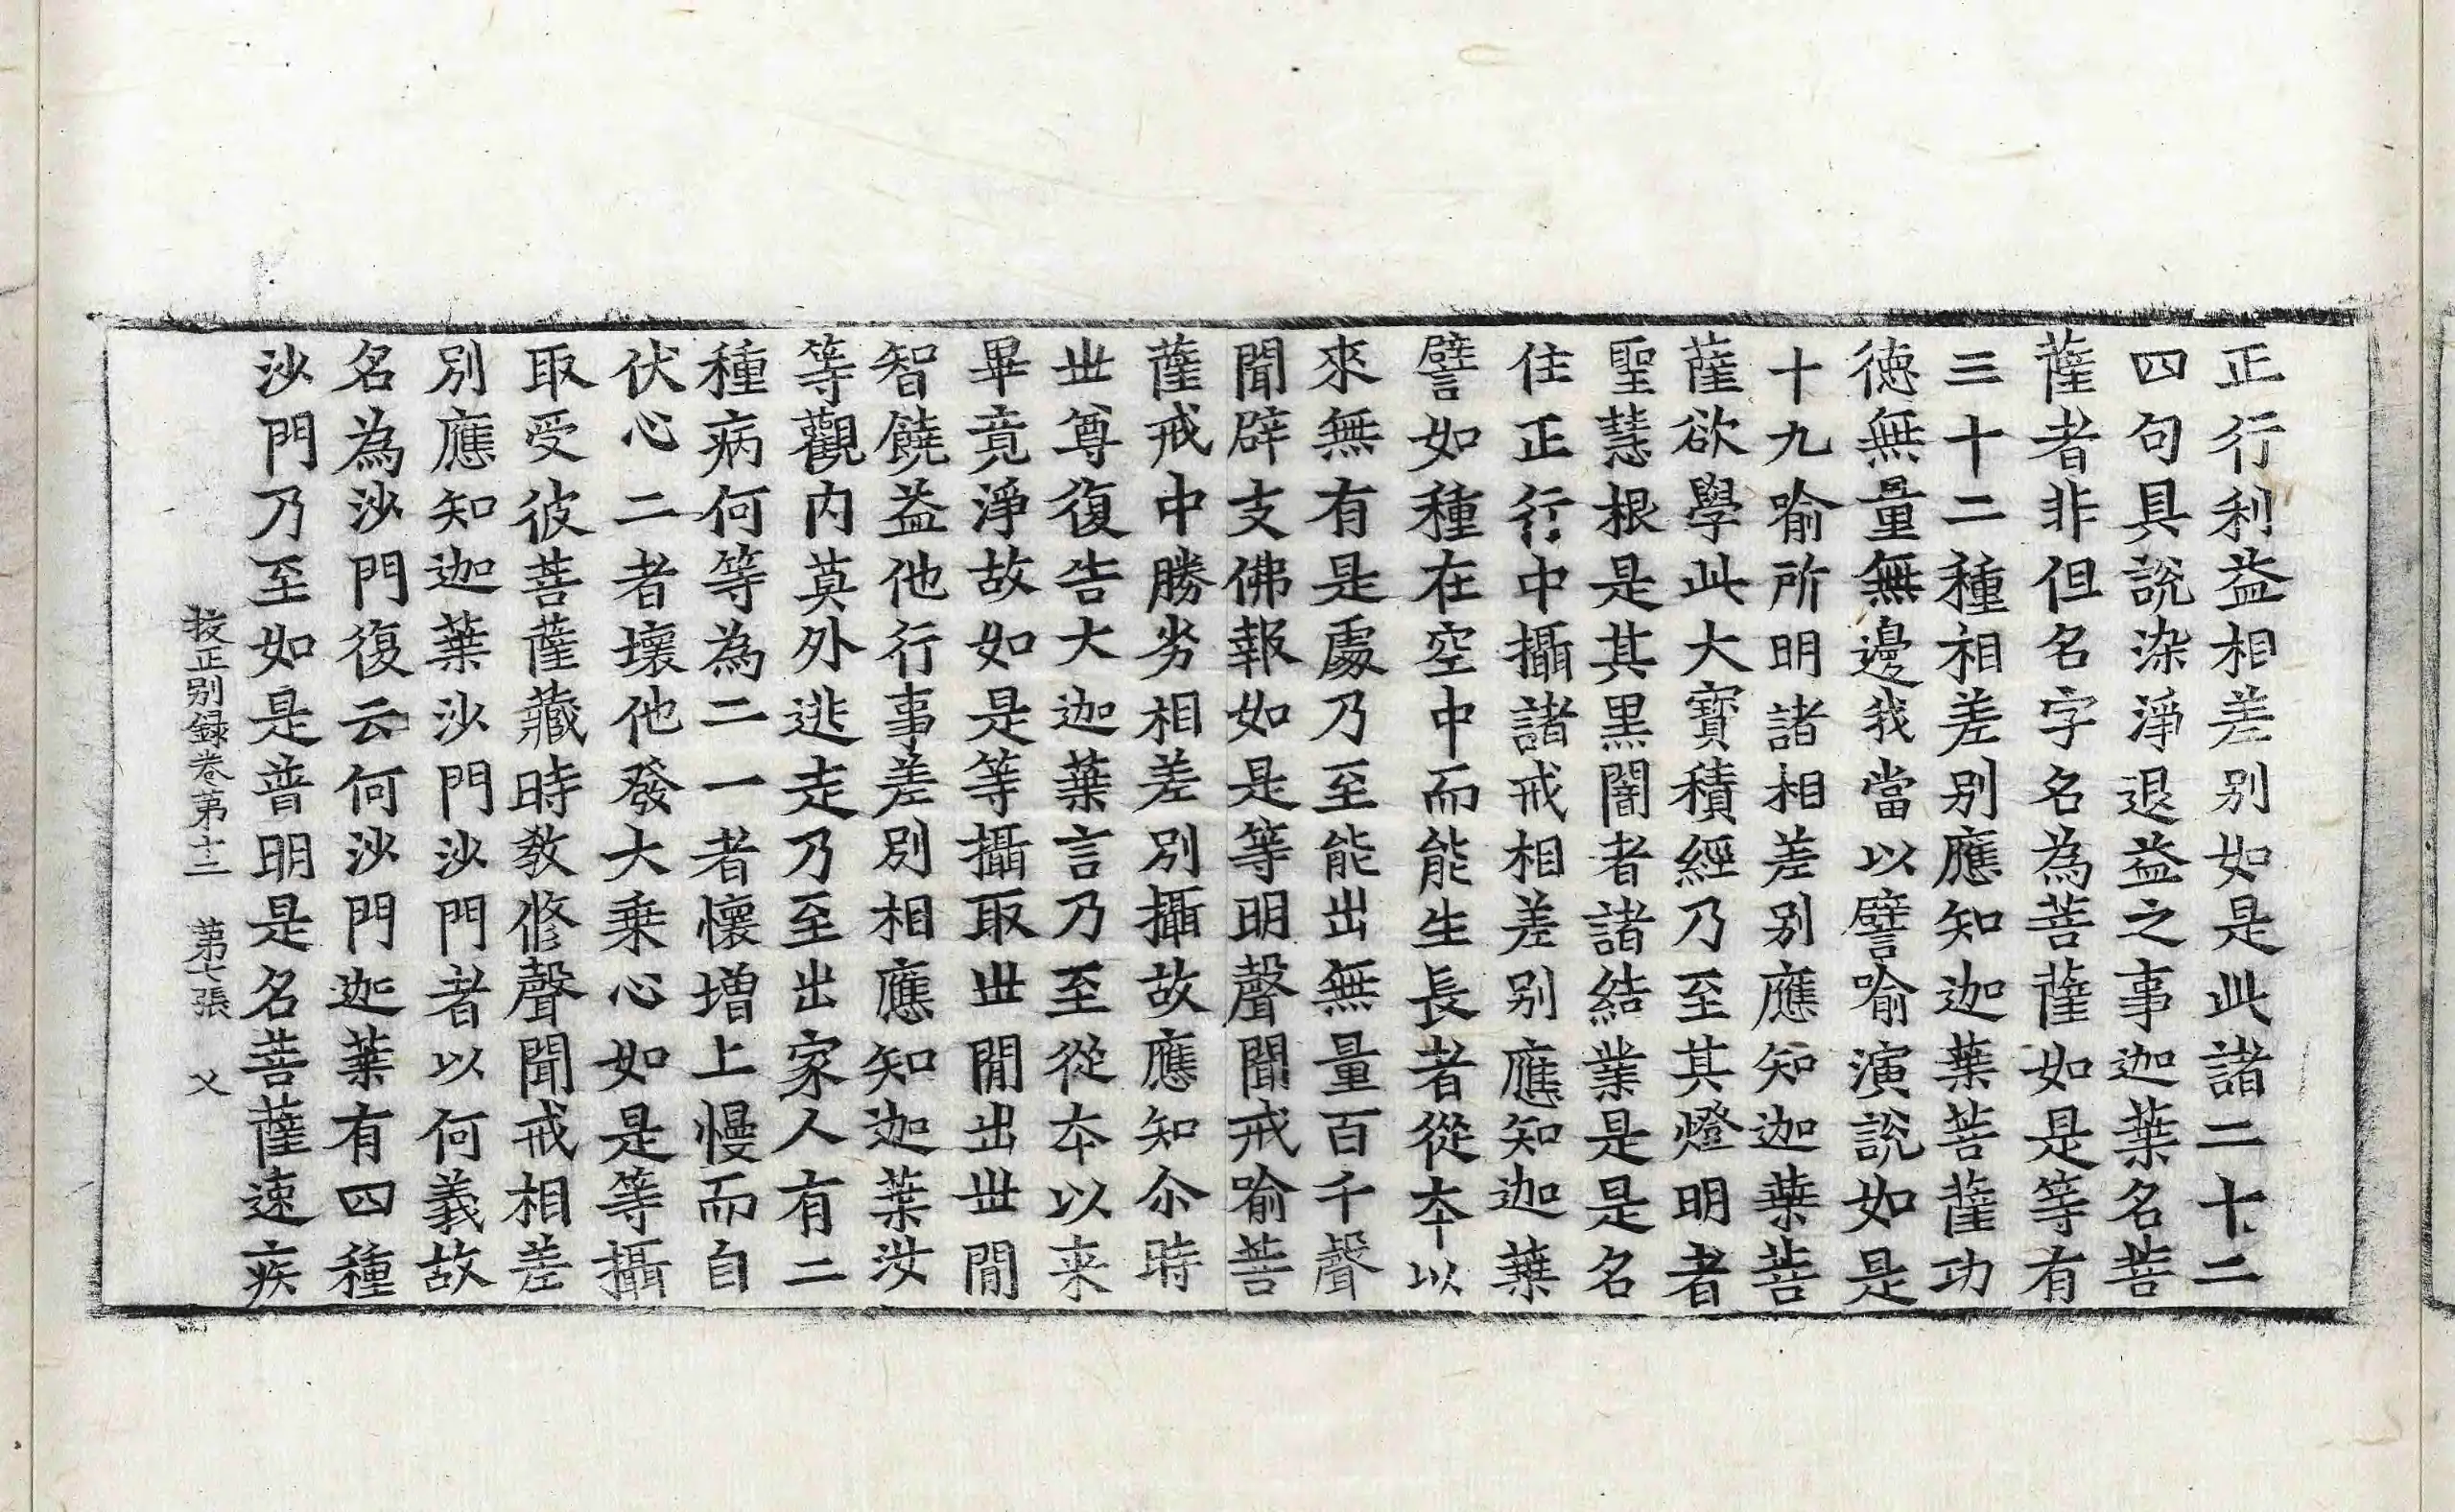 正行利益相差别如是此諸二十二
四句具說染淨退益之事迦葉名菩
薩者非但名字名為菩薩如是等有
三十二種相差别應知迦葉菩薩功
徳無量無邊我當以譬喻演說如是
十九喻所明諸相差别應知迦葉菩
薩欲學此大寶積經乃至其燈明者
聖慧根是其黒闇者諸結業是是名
住正行中攝諸戒相差别應知迦葉
譬如種在空中而能生長者從夲以
來無有是處乃至能出無量百千聲
聞辟支佛報如是等明聲聞戒喻菩
薩戒中勝劣相差別攝故應知尒時
世尊復告大迦葉言乃至從夲以来
畢竟淨故如是等攝取世閒出世閒
智饒益他行事差別相應知迦葉汝
等觀内莫外逃走乃至出家人有二
種病何等為二一者懷増上慢而自
伏心二者壞他發大乗心如是等攝
取受彼菩薩藏時教修聲聞戒相差
別應知迦葉沙門沙門者以何義故
名為沙門復云何沙門迦葉有四種
沙門乃至如是普明是名菩薩速疾
挍正别録卷第十二 第七張 义